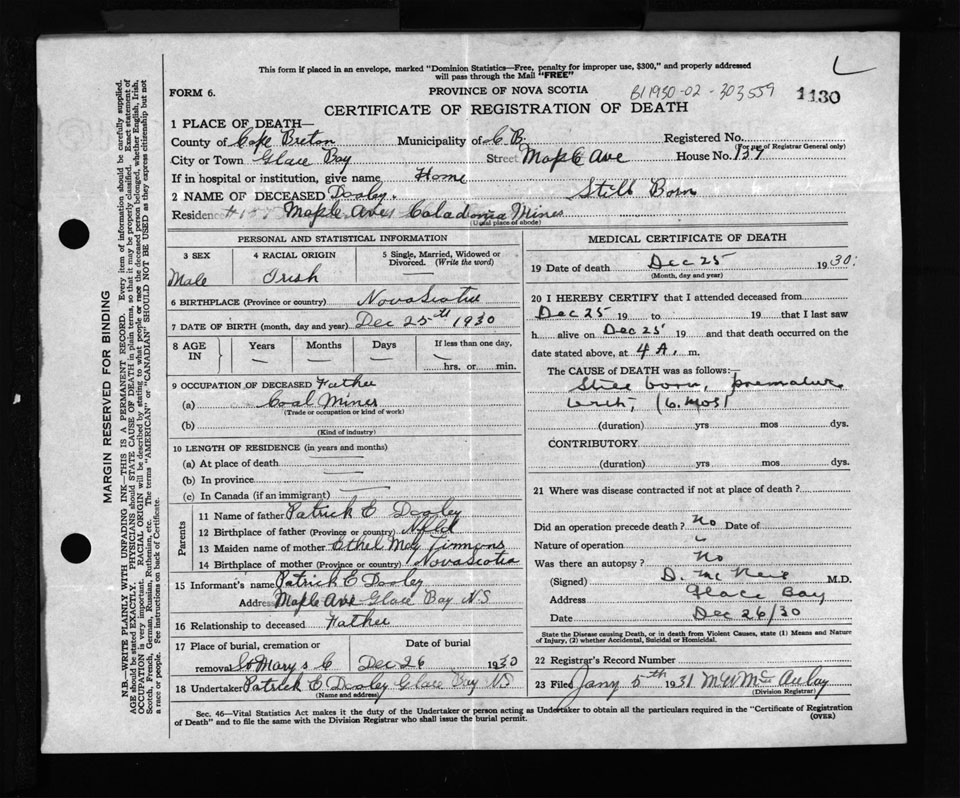 This form if placed in an envelope, marked "Dominion Statistics—Free, penalty for improper use, $300," and properly addressed
will pass through the Mail "FREE"
FORM 6.
PROVINCE OF NOVA SCOTIA
B1930-02-303559
1130
CERTIFICATE OF REGISTRATION OF DEATH
1 PLACE OF DEATH—
County of Cape Breton Municipality of C B. Registered No.
(For use of Registrar General only)
City or Town Glace Bay Street Maple Ave House No. 137
If in hospital or institution, give name Home
2 NAME OF DECEASED Dooley. Still Born
Residence Maple Ave Caladonia Mines
(Usual place of abode)
PERSONAL AND STATISTICAL INFORMATION
3 SEX 4 RACIAL ORIGIN 5 Single, Married, Widowed or Divorced. (Write the word)
Male Irish
6 BIRTHPLACE (Province or country) Nova Scotia
7 DATE OF BIRTH (month, day and year) Dec 25th 1930
8 AGE IN Years Months Days If less than one day,
hrs. or min.
9 OCCUPATION OF DECEASED Father
(a) Coal Miner
(Trade or occupation or kind of work)
(b)
(Kind of industry)
10 LENGTH OF RESIDENCE (in years and months)
(a) At place of death
(b) In province
(c) In Canada (if an immigrant)
Parents
11 Name of father Patrick C Dooley
12 Birthplace of father (Province or country) Nfld
13 Maiden name of mother Ethel May Timmons
14 Birthplace of mother (Province or country) Nova Scotia
15 Informant's name Patrick C Dooley
Address Maple Ave Glace Bay N.S
16 Relationship to deceased Father
17 Place of burial, cremation or Date of burial
removal St Mary's C Dec 26 1930
18 Undertaker Patrick C Dooley Glace Bay NS
(Name and address)
MEDICAL CERTIFICATE OF DEATH
19 Date of death Dec 25 1930.
(Month, day and year)
20 I HEREBY CERTIFY that I attended deceased from
Dec 25 19 to 19 that I last saw
h alive on Dec 25 19 and that death occurred on the
date stated above, at 4 A. m.
The CAUSE of DEATH was as follows:—
Still born, premature
birth, (6. mos)
(duration) yrs mos dys.
CONTRIBUTORY
(duration) yrs mos dys.
21 Where was disease contracted if not at place of death?
Did an operation precede death? No Date of
Nature of operation "
Was there an autopsy? No
(Signed) D. McNeil M.D.
Address Glace Bay
Date Dec 26/30
State the Disease causing Death, or in death from Violent Causes, state (1) Means and Nature
of Injury, (2) whether Accidental, Suicidal or Homicidal.
22 Registrar's Record Number
23 Filed Jany 5th 1931 M W McAulay
(Division Registrar)
Sec. 46—Vital Statistics Act makes it the duty of the Undertaker or person acting as Undertaker to obtain all the particulars required in the "Certificate of Registration
of Death" and to file the same with the Division Registrar who shall issue the burial permit. (OVER)
MARGIN RESERVED FOR BINDING
N.B.—WRITE PLAINLY WITH UNFADING INK—THIS IS A PERMANENT RECORD. Every item of information should be carefully supplied.
AGE should be stated EXACTLY. PHYSICIANS should STATE CAUSE OF DEATH in plain terms, so that it may be properly classified. Exact statement of
OCCUPATION is very important. RACIAL ORIGIN will be described by stating to what people or race the deceased person belonged, whether English, Irish,
Scotch, French, German, Russian, Ruthenian, etc. The terms "AMERICAN" or "CANADIAN" SHOULD NOT BE USED as they express citizenship but not
a race or people. See instructions on back of Certificate.